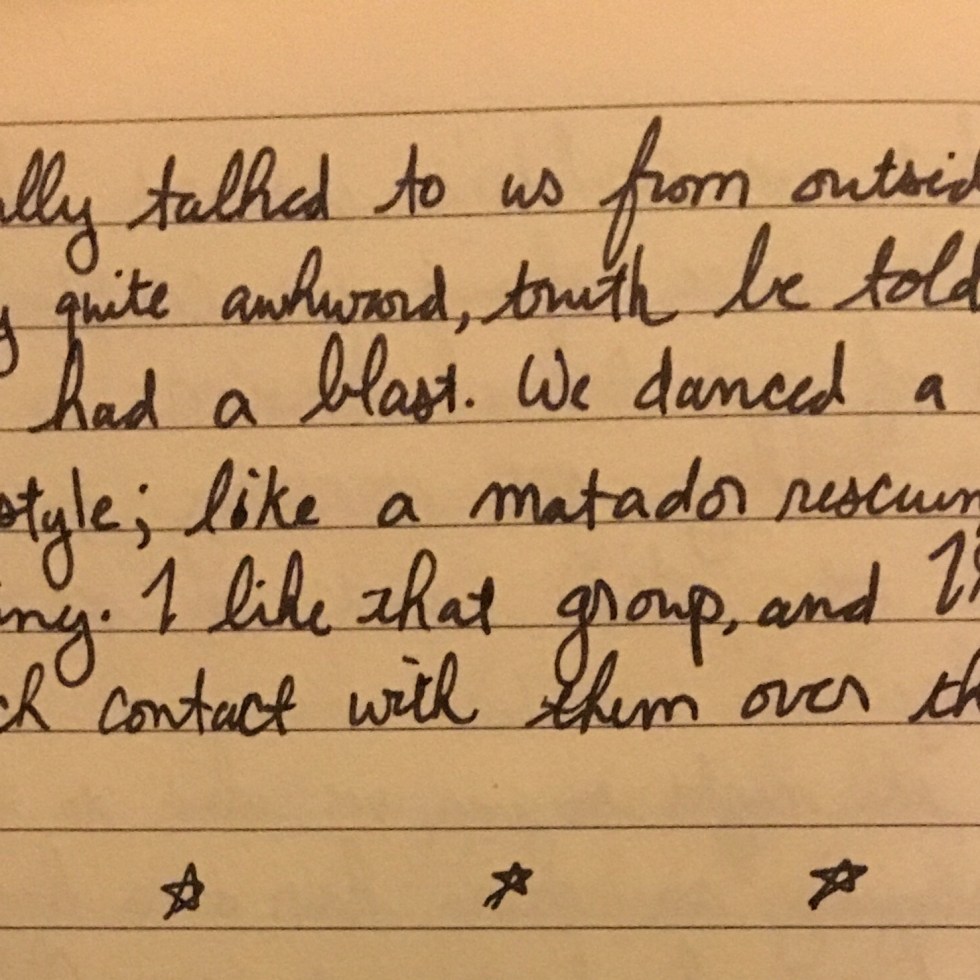 ally talked to us from outsid
y quite awkward, truth be told
had a blast. We danced a
style; like a matador rescuin
ing. I like that group, and I'
ch contact with them over th